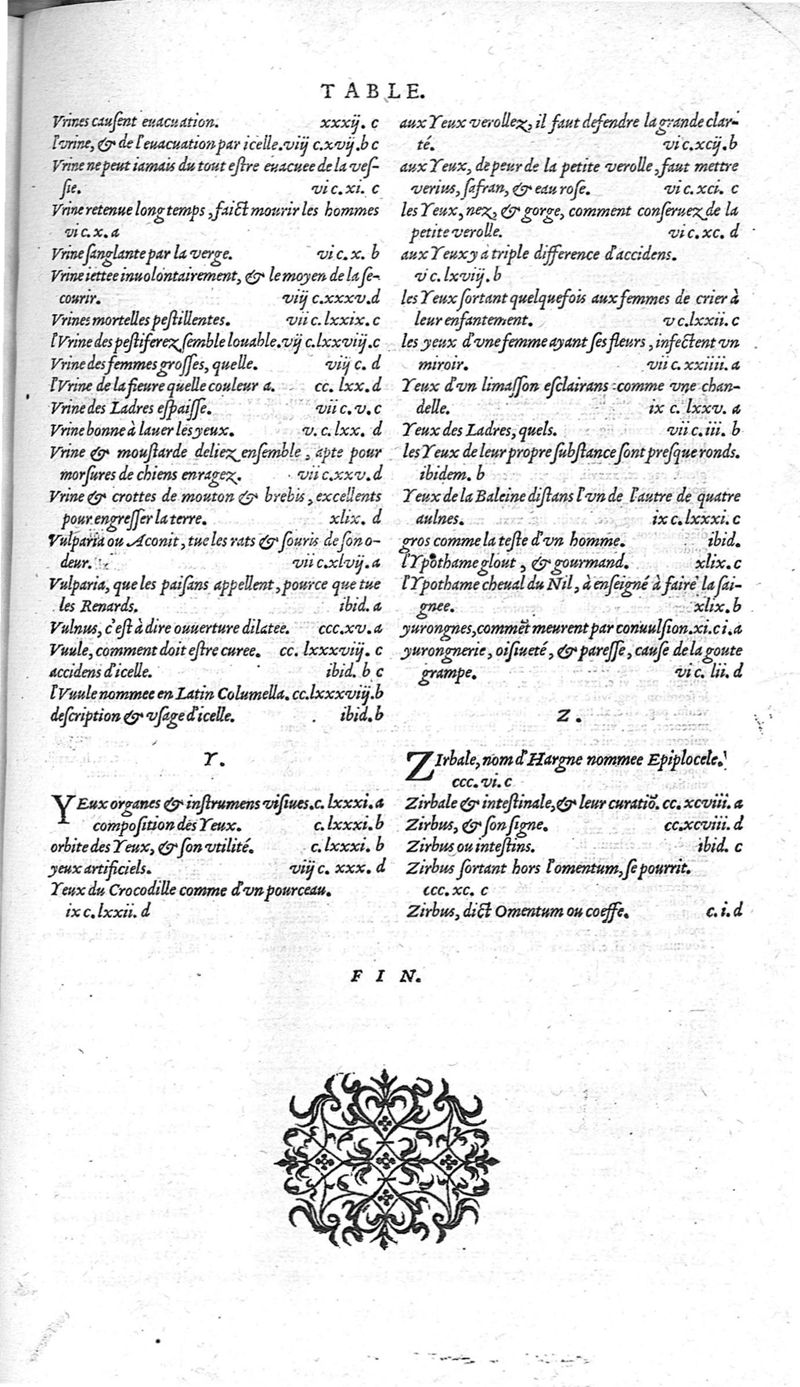 TABLE.
Vrines causent euacuation. xxxij. c
l'vrine, & de l'euacuation par icelle. viij c.xvij. b c
Vrine ne peut iamais du tout estre euacuee de la ves-
sie. vi c. xi. c
Vrine retenue long temps, faict mourir les hommes
vi c. x. a
Vrine sanglante par la verge. vi c. x. b
Vrine iettee inuolontairement, & le moyen de la se-
courir. viij c.xxxv. d
Vrines mortelles pestillentes. vii c. lxxix. c
l'Vrine des pestiferez semble louable. vij c. lxxviij. c
Vrine des femmes grosses, quelle. viij c. d
l'Vrine de la fieure quelle couleur a. cc. lxx. d
Vrine des Ladres espaisse. vii c. v. c
Vrine bonne à lauer les yeux. v. c. lxx. d
Vrine & moustarde deliez ensemble, apte pour
morsures de chiens enragez. vii c. xxv. d
Vrine & crottes de mouton & brebis, excellents
pour engresser la terre. xlix. d
Vulparia ou Aconit, tue les rats & souris de son o-
deur. vii c. xlvij. a
Vulparia, que les paisans appellent, pource que tue
les Renards. ibid. a
Vulnus, c'est à dire ouuerture dilatee. ccc. xv. a
Vuule, comment doit estre curee. cc. lxxxviij. c
accidens d'icelle. ibid. b c
l'Vuule nommee en Latin Columella. cc. lxxxviij. b
description & vsage d'icelle. ibid. b
Y.
YEux organes & instrumens visiues. c. lxxxi. a
composition des Yeux. c. lxxxi. b
orbite des Yeux, & son vtilité. c. lxxxi. b
yeux artificiels. viij c. xxx. d
Yeux du Crocodille comme d'vn pourceau.
ix c. lxxii. d
aux Yeux verollez, il faut defendre la grande clar-
té. vi c. xcij. b
aux Yeux, de peur de la petite verolle, faut mettre
verius, safran, & eau rose. vi c. xci. c
les Yeux, nez, & gorge, comment conseruez de la
petite verolle. vi c. xc. d
aux Yeux y à triple difference d'accidens.
v c. lxviij. b
les Yeux sortant quelquefois aux femmes de crier à
leur enfantement. v c. lxxii. c
les yeux d'vne femme ayant ses fleurs, infectent vn
miroir. vii c. xxiiii. a
Yeux d'vn limasson esclairans comme vne chan-
delle. ix c. lxxv. a
Yeux des Ladres, quels. vii c. iii. b
les Yeux de leur propre substance sont presque ronds.
ibidem. b
Yeux de la Baleine distans l'vn de l'autre de quatre
aulnes. ix c. lxxxi. c
gros comme la teste d'vn homme. ibid.
l'Ypothame glout, & gourmand. xlix. c
l'Ypothame cheual du Nil, à enseigné à faire la sai-
gnee. xlix. b
yurongnes, commēt meurent par conuulsion. xi. c i. a
yurongnerie, oisiueté, & paresse, cause de la goute
grampe. vi c. lii. d
Z.
ZIrbale, nom d'Hargne nommee Epiplocele.
ccc. vi. c
Zirbale & intestinale, & leur curatiō. cc. xcviii. a
Zirbus, & son signe. cc. xcviii. d
Zirbus ou intestins. ibid. c
Zirbus sortant hors l'omentum, se pourrit.
ccc. xc. c
Zirbus, dict Omentum ou coeffe. c. i. d
FIN.